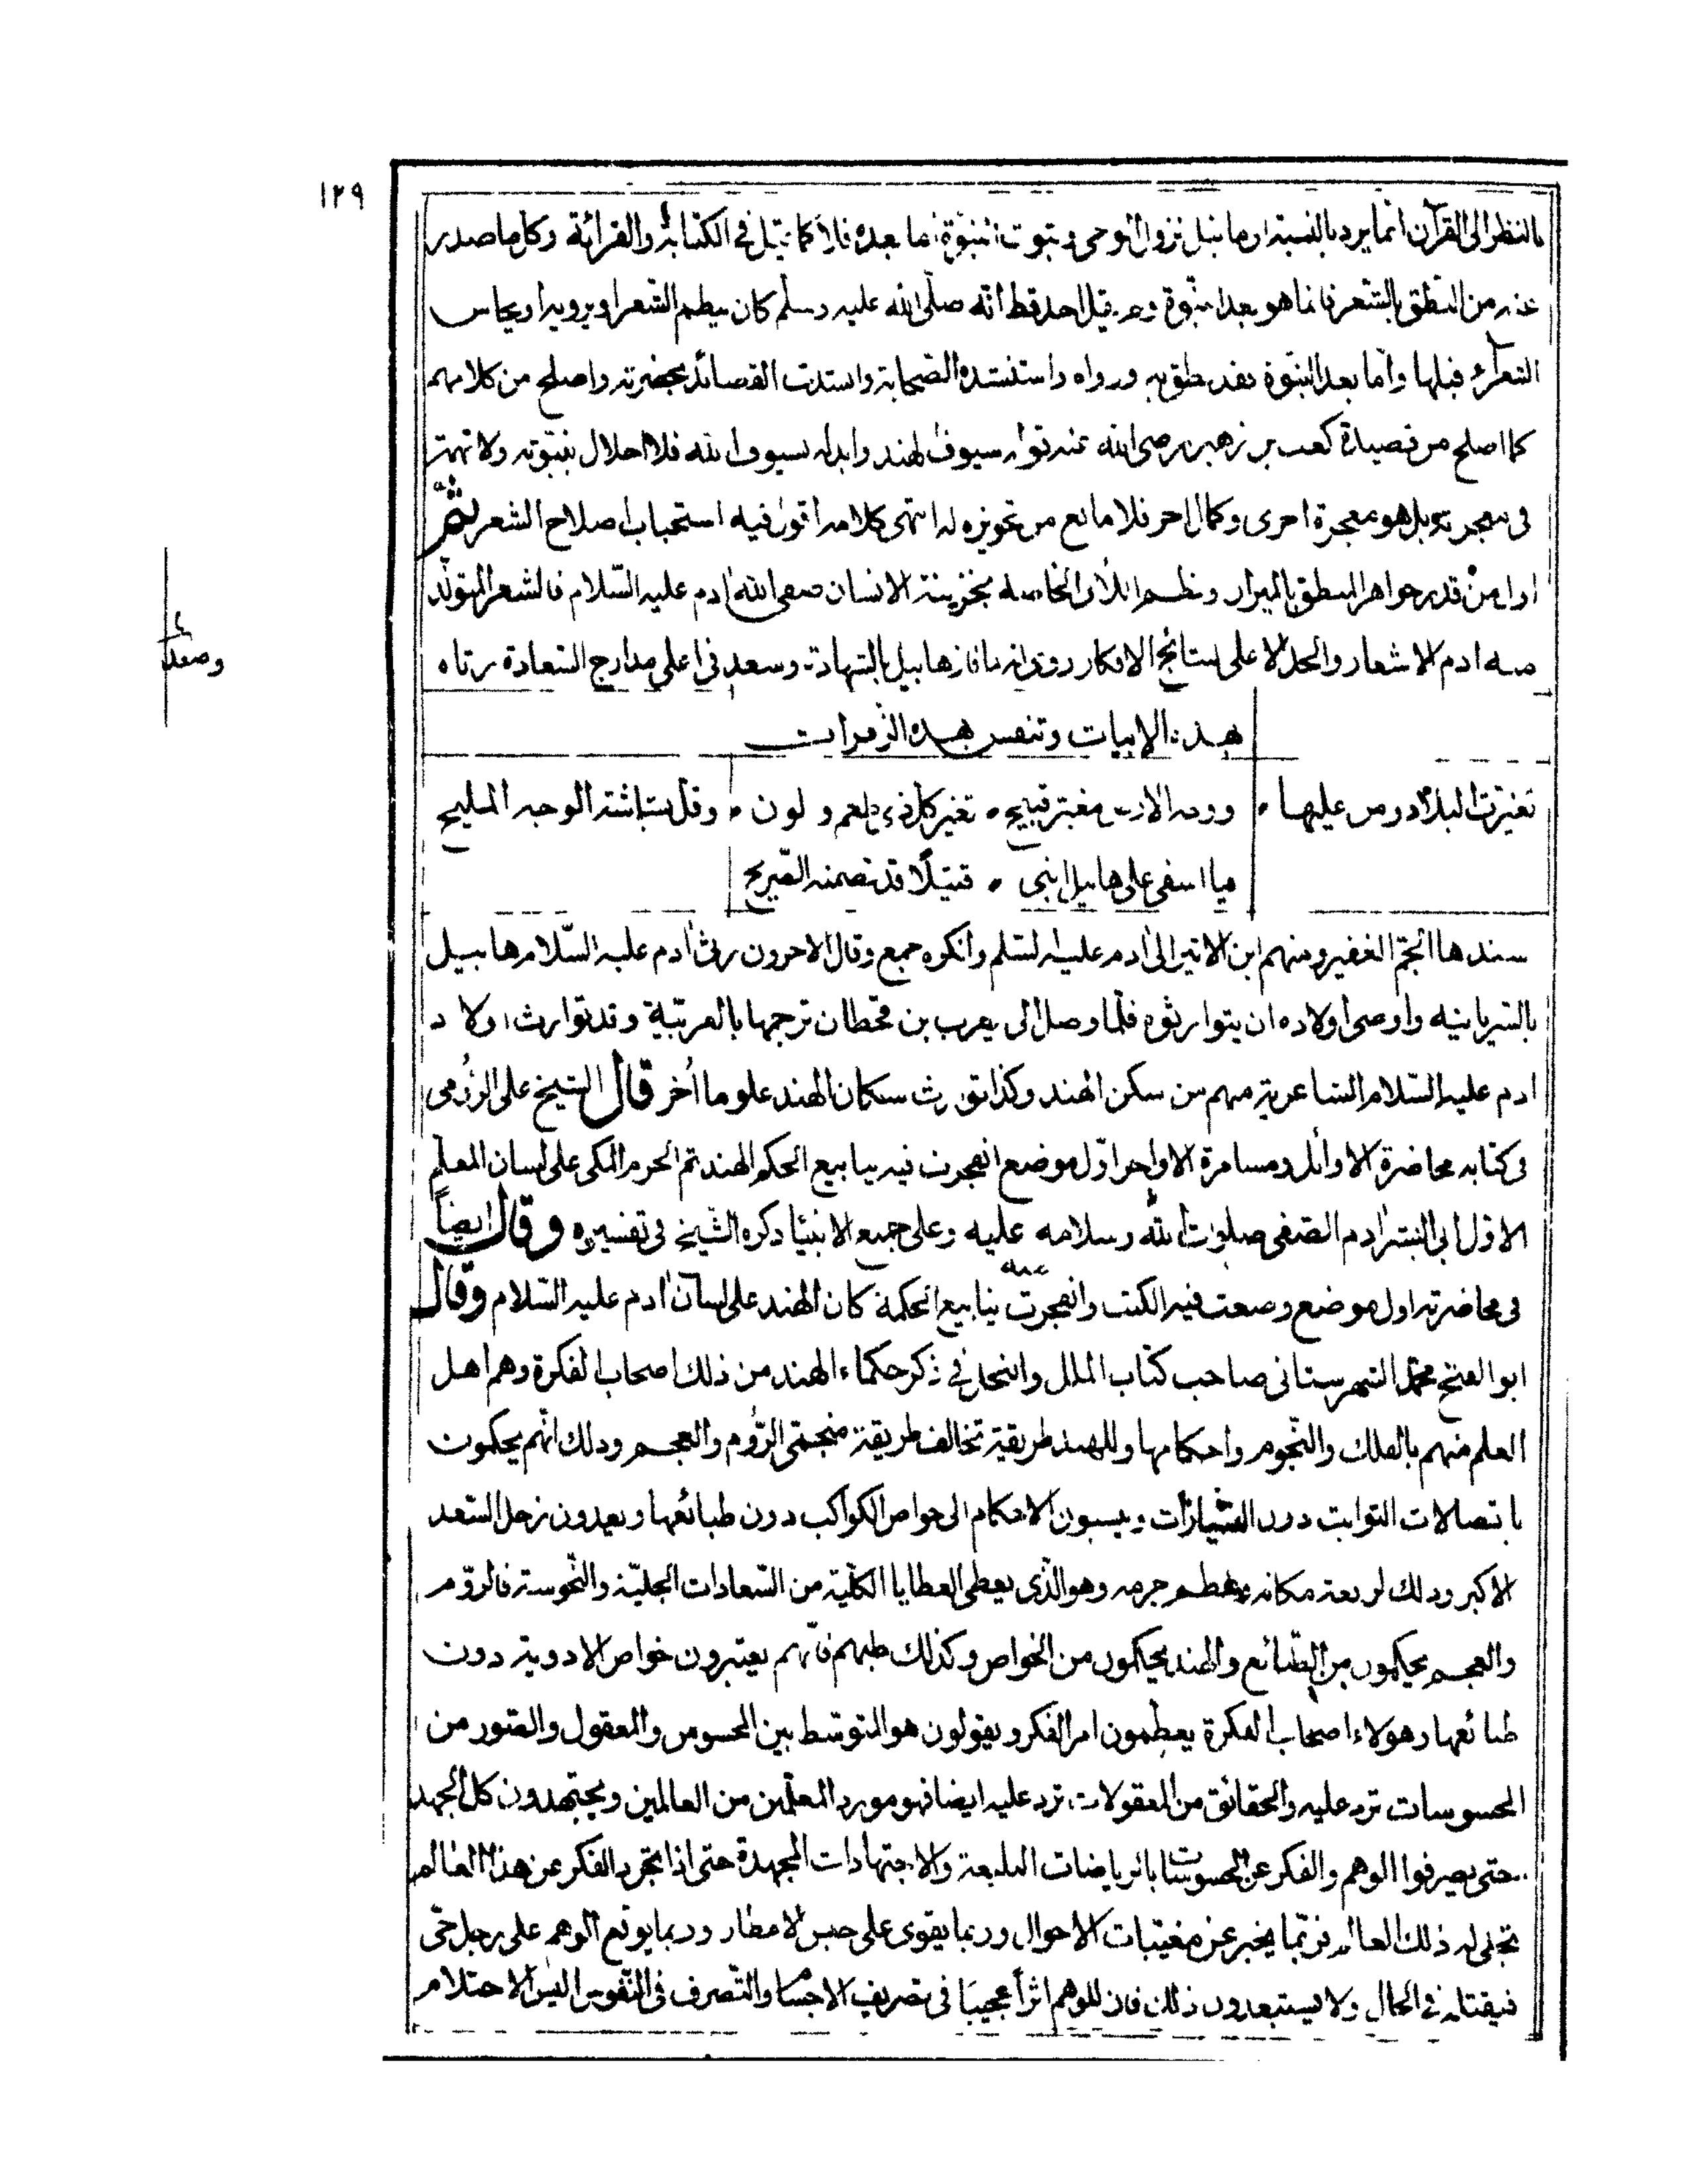 ١٢٩
بالنظر الى القرآن انما يرد بالنسبة الى ما قبل نزول الوحى وثبوت النبوة اما بعده فلا كما قيل فى الكتابة والقرائة وكل ما صدر
عنه من النطق بالشعر فانما هو بعد النبوة ولم يقل احد قط انه صلى الله عليه وسلم كان ينظم الشعر او يرويه او يجالس
الشعراء قبلها واما بعد النبوة فقد نطق به ورواه واستنشده الصحابة وانشدت القصائد بحضرته واصلح من كلامهم
كما اصلح من قصيدة كعب بن زهير رضى الله عنه قوله سيوف الهند وابدله بسيوف الله فلا اخلال بنبوته ولا تهمة
فى معجزته بل هو معجزة اخرى وكمال اخر فلا مانع من تجويزه له انتهى كلامه اقول فيه استحباب اصلاح الشعر ثم
اول من قدر جواهر المنطق بالميزان ونظم اللآلى الخاصة بخزينة الانسان صفى الله ادم عليه السلام فالشعر المتولد
منه ادم الاشعار والجد الاعلى لنتائج الافكار روى انه لما فاز هابيل بالشهادة وسعد فى اعلى مدارج السعادة رثاه
وصعد
بهذه الابيات وتنفس بهذه الزفرات
تغيرت البلاد ومن عليها • ووجه الارض مغبر قبيح • تغير كل ذى طعم ولون • وقل بشاشة الوجه المليح
فيا اسفى على هابيل ابنى • قتيلا قد تضمنه الضريح
سندها الجم الغفير ومنهم ابن الاثير الى ادم عليه السلم وانكره جمع وقال الاخرون رثى ادم عليه السلام هابيل
بالسريانيه واوصى اولاده ان يتوارثوه فلما وصل الى يعرب بن قحطان ترجمها بالعربية وقد توارث اولاد
ادم عليه السلام الشاعرية منهم من سكن الهند وكذا تورث سكان الهند علوما اُخر قال الشيخ على الرومى
فى كتابه محاضرة الاوائل ومسامرة الاواخر اول موضع انفجرت فيه ينابيع الحكم الهند ثم الحرم المكى على لسان المعلم
الاول ابى البشر ادم الصفى صلوات الله وسلامه عليه وعلى جميع الانبيا ذكره الشيخ فى تفسيره وقال ايضاً
فى محاضرته اول موضع وضعت فيه الكتب وانفجرت عنه ينابيع الحكمة كان الهند على لسان ادم عليه السلام وقال
ابو الفتح محمد الشهرستانى صاحب كتاب الملل والنحل فى ذكر حكماء الهند من ذلك اصحاب الفكرة وهم اهل
العلم منهم بالفلك والنجوم واحكامها وللهند طريقة تخالف طريقة منجمى الروم والعجم وذلك انهم يحكمون
باتصالات الثوابت دون السيارات وينسبون الاحكام الى خواص الكواكب دون طبائعها ويعدون زحل السعد
الاكبر وذلك لرفعة مكانه وعظم جرمه وهو الذى يعطى العطايا الكلية من السعادات الجلية والنحوسة فالروم
والعجم يحكمون من الطبائع والهند يحكمون من الخواص وكذلك طبهم فانهم يعتبرون خواص الادوية دون
طبائعها وهولاء اصحاب الفكرة يعظمون امر الفكر ويقولون هو المتوسط بين المحسوس والمعقول والصور من
المحسوسات ترد عليه والحقائق من المعقولات ترد عليه ايضا فهو مورد المعلمين من العالمين ويجتهدون كل الجهد
حتى يصرفوا الوهم والفكر عن المحسوسات بالرياضات البليغة والاجتهادات المجهدة حتى اذا تجرد الفكر عن هذا العالم
تجلى له ذلك العالم فربما يخبر عن مغيبات الاحوال وربما يقوى على حبس الامطار وربما يوقع الوهم على رجل حى
فيقتله فى الحال ولا يستبعدون ذلك فان للوهم اثرا عجيبا فى تصريف الاجسام والتصرف فى النفوس اليس الاحتلام